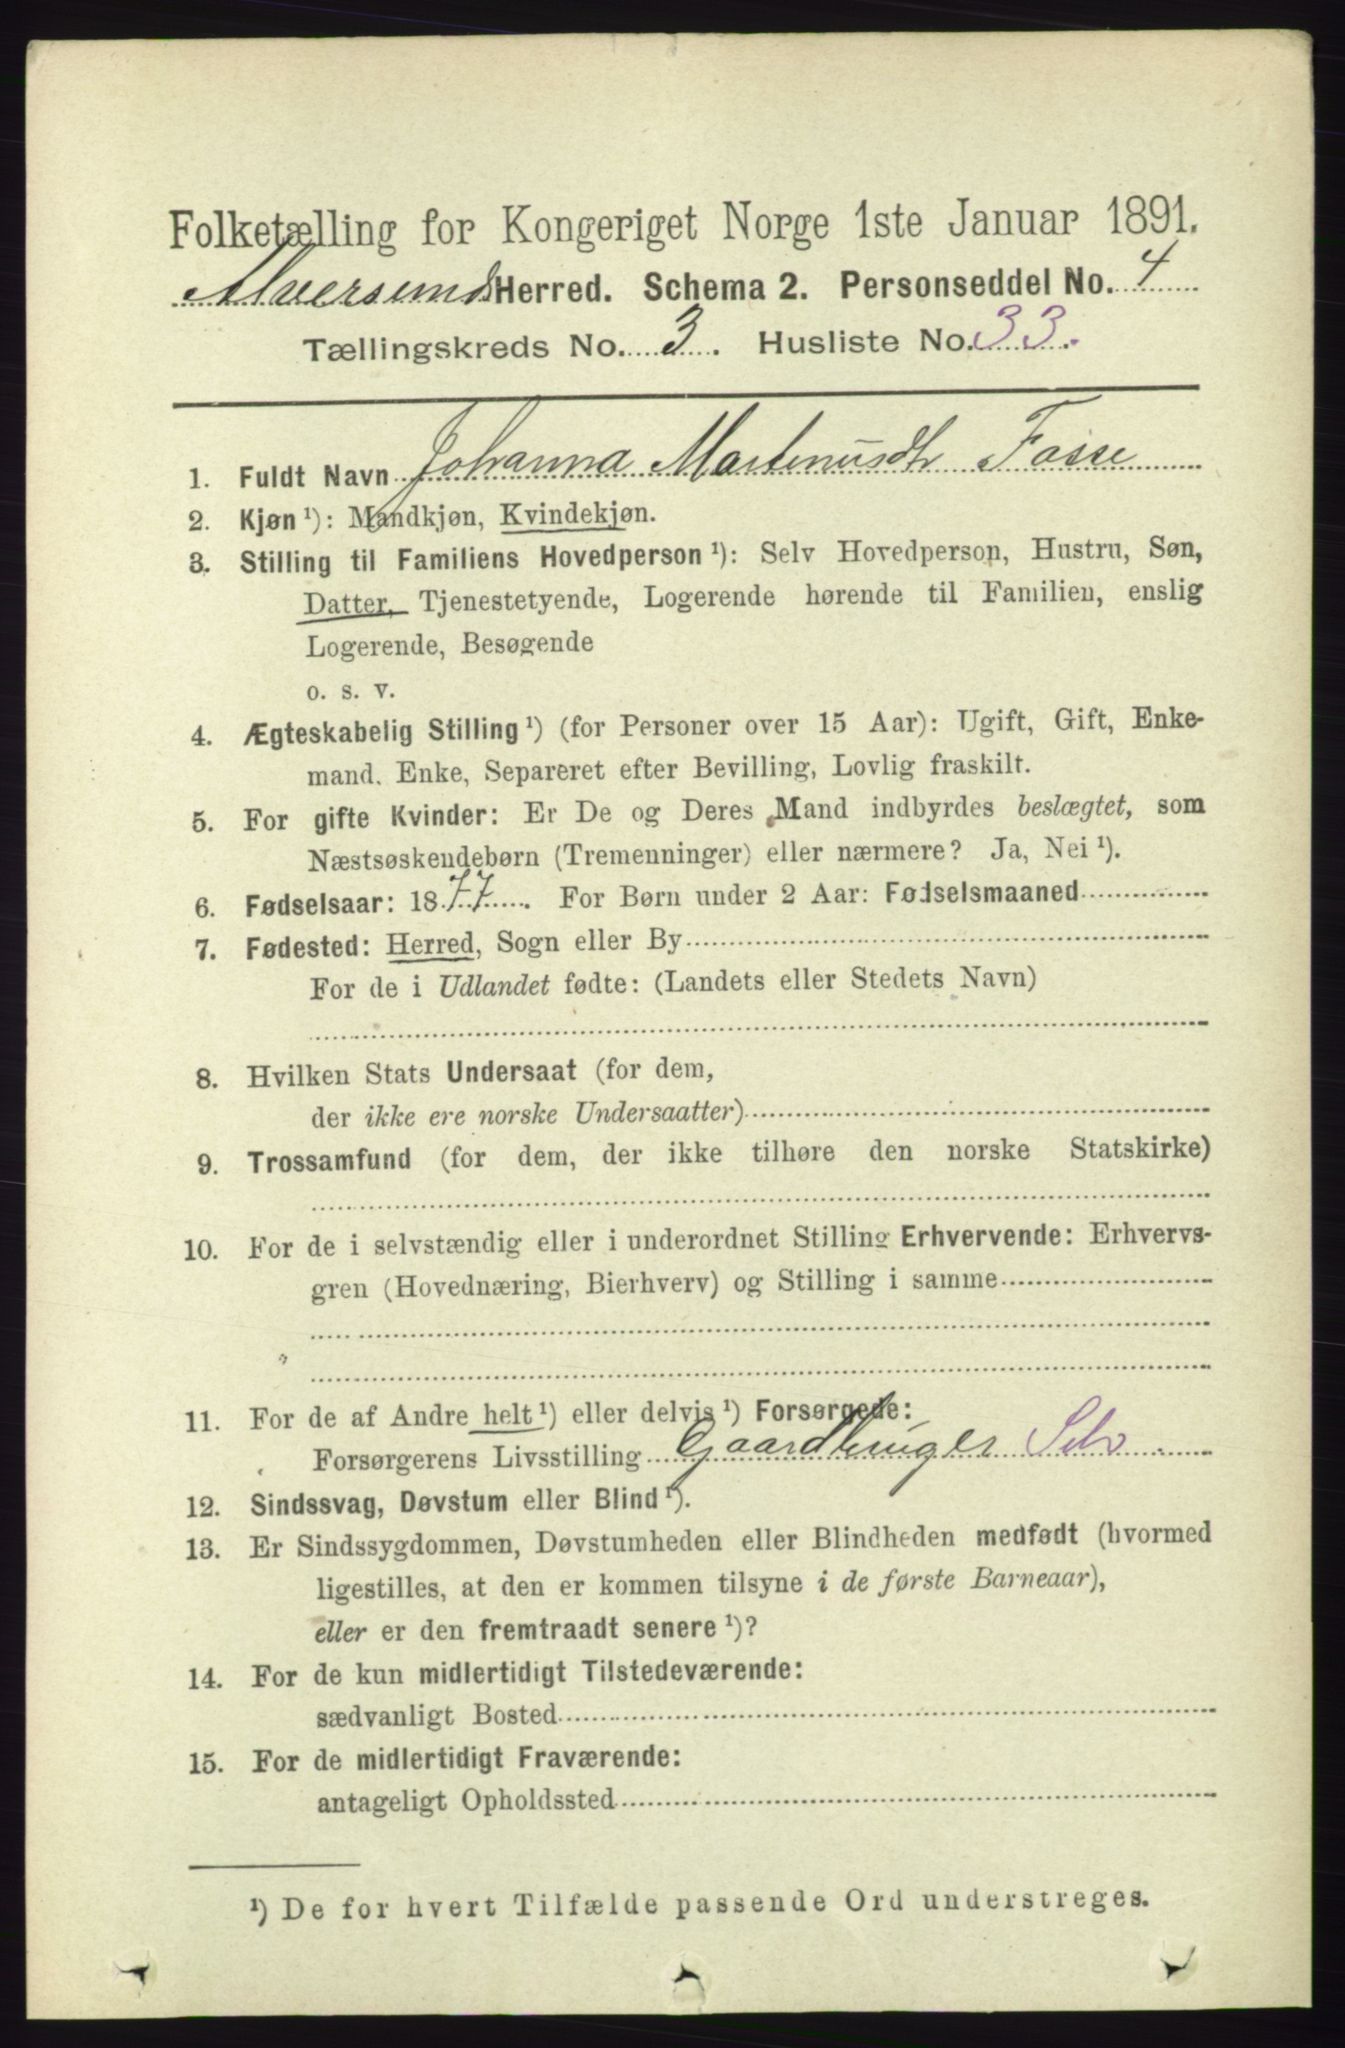 Folketælling for Kongeriget Norge 1ste Januar 1891.
Alversund Herred. Schema 2. Personseddel No. 4
Tællingskreds No. 3. Husliste No. 33.
1. Fuldt Navn Johanna Martinusdtr Fosse
2. Kjøn ¹): Mandkjøn, Kvindekjøn.
3. Stilling til Familiens Hovedperson ¹): Selv Hovedperson, Hustru, Søn,
Datter, Tjenestetyende, Logerende hørende til Familien, enslig
Logerende, Besøgende
o. s. v.
4. Ægteskabelig Stilling ¹) (for Personer over 15 Aar): Ugift, Gift, Enke-
mand, Enke, Separeret efter Bevilling, Lovlig fraskilt.
5. For gifte Kvinder: Er De og Deres Mand indbyrdes beslægtet, som
Næstsøskendebørn (Tremenninger) eller nærmere? Ja, Nei ¹).
6. Fødselsaar: 1877. For Børn under 2 Aar: Fødselsmaaned
7. Fødested: Herred, Sogn eller By
For de i Udlandet fødte: (Landets eller Stedets Navn)
8. Hvilken Stats Undersaat (for dem,
der ikke ere norske Undersaatter)
9. Trossamfund (for dem, der ikke tilhøre den norske Statskirke)
10. For de i selvstændig eller i underordnet Stilling Erhvervende: Erhvervs-
gren (Hovednæring, Bierhverv) og Stilling i samme
11. For de af Andre helt ¹) eller delvis ¹) Forsørgede:
Forsørgerens Livsstilling Gaardbruger Selv.
12. Sindssvag, Døvstum eller Blind ¹).
13. Er Sindssygdommen, Døvstumheden eller Blindheden medfødt (hvormed
ligestilles, at den er kommen tilsyne i de første Barneaar),
eller er den fremtraadt senere ¹)?
14. For de kun midlertidigt Tilstedeværende:
sædvanligt Bosted
15. For de midlertidigt Fraværende:
antageligt Opholdssted
¹) De for hvert Tilfælde passende Ord understreges.